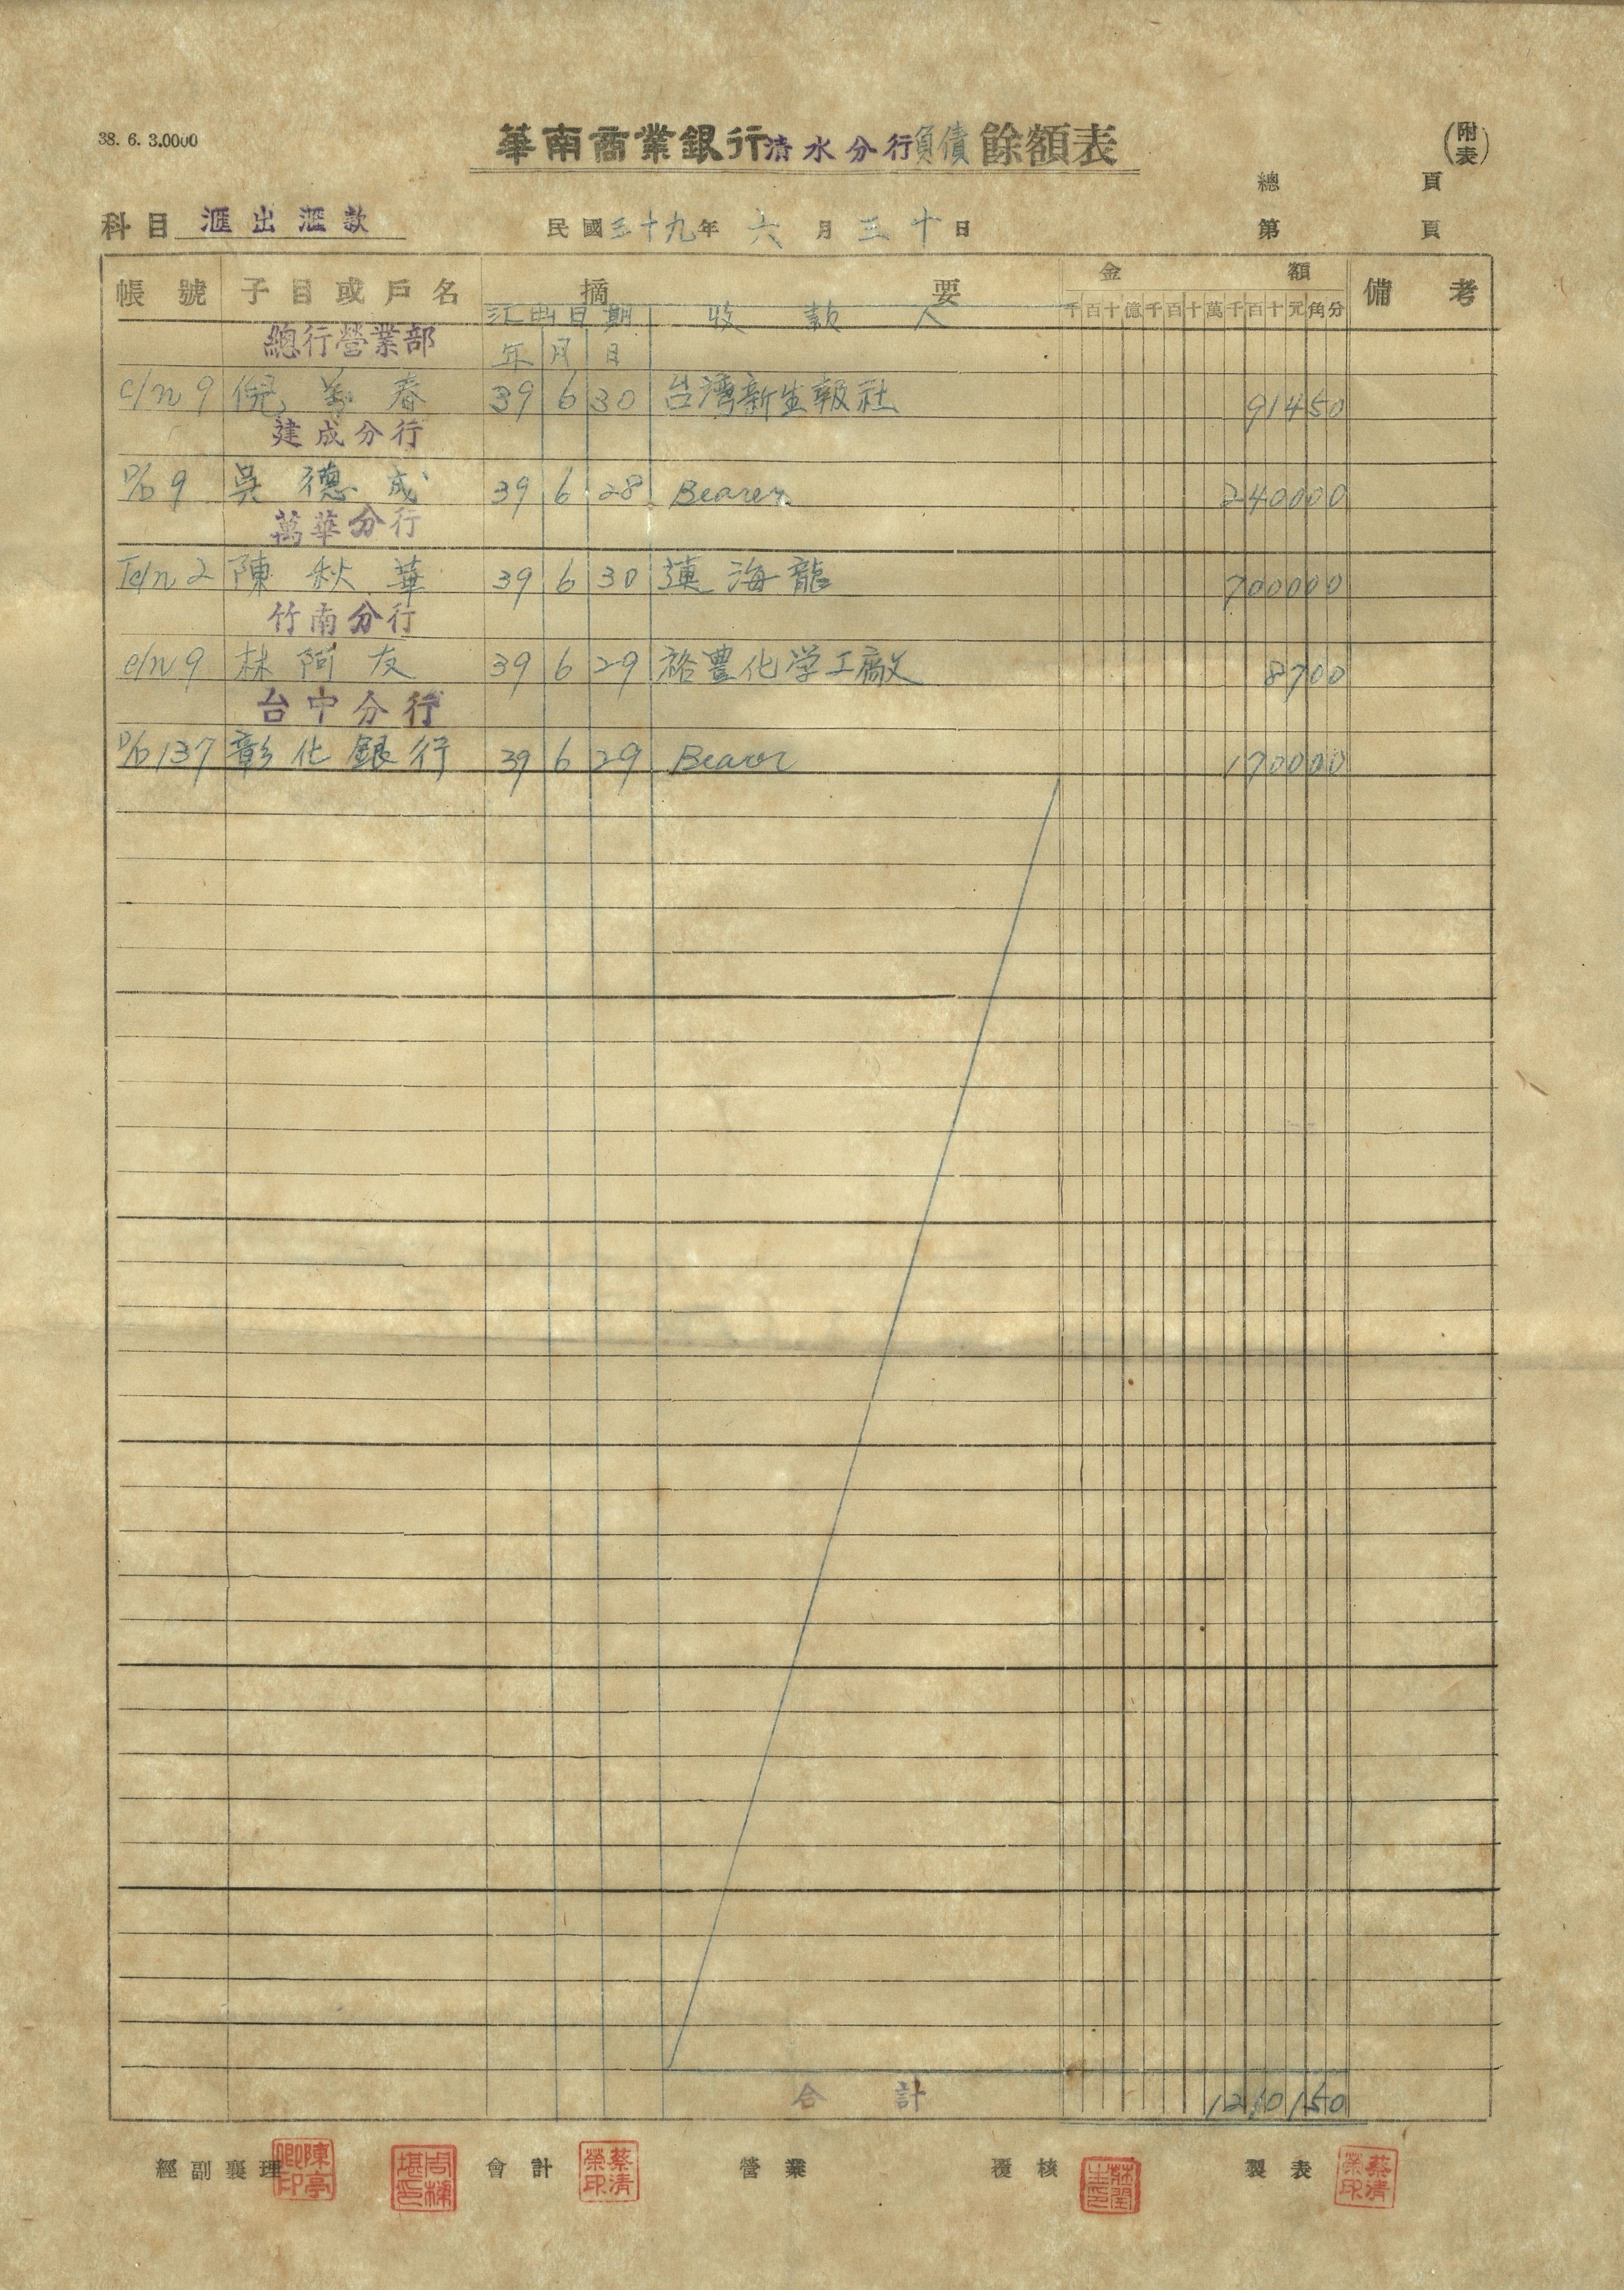 38. 6. 3.0000
華南商業銀行清水分行負債餘額表
(附表)
總 頁
科目 滙出滙款 民國三十九年 六 月 三十 日 第 頁
帳號 子目或戶名 摘要 金額 備考
汇出日期 收款人 千百十億千百十萬千百十元角分
總行營業部 年 月 日
c/n 9 倪 春 39 6 30 台湾新生報社 91450
建成分行
D/D 9 吳德成 39 6 28 Bearer 240000
萬華分行
Te/n 2 陳秋華 39 6 30 連海龍 700000
竹南分行
c/n 9 林阿友 39 6 29 裕豊化学工廠 8700
台中分行
D/D 137 彰化銀行 39 6 29 Bearer 170000
合計 1210150
經副襄理 陳亭卿印 會計 蔡清榮印 營業 覆核 製表 蔡清榮印